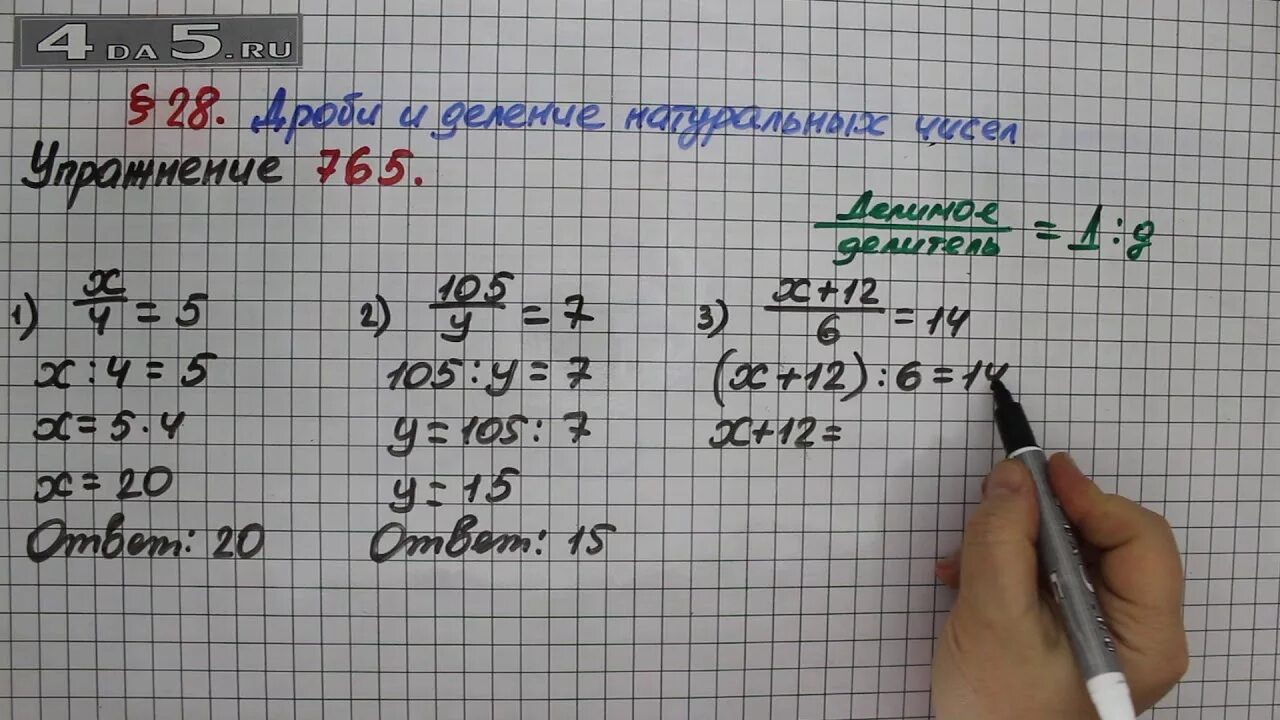 4 DA 5.RU
§ 28. Дроби и деление натуральных чисел
Упражнение 765.
Делимое / делитель = Д : д
1) x/4 = 5
x : 4 = 5
x = 5 · 4
x = 20
Ответ: 20
2) 105/y = 7
105 : y = 7
y = 105 : 7
y = 15
Ответ: 15
3) (x+12)/6 = 14
(x+12) : 6 = 14
x+12 =